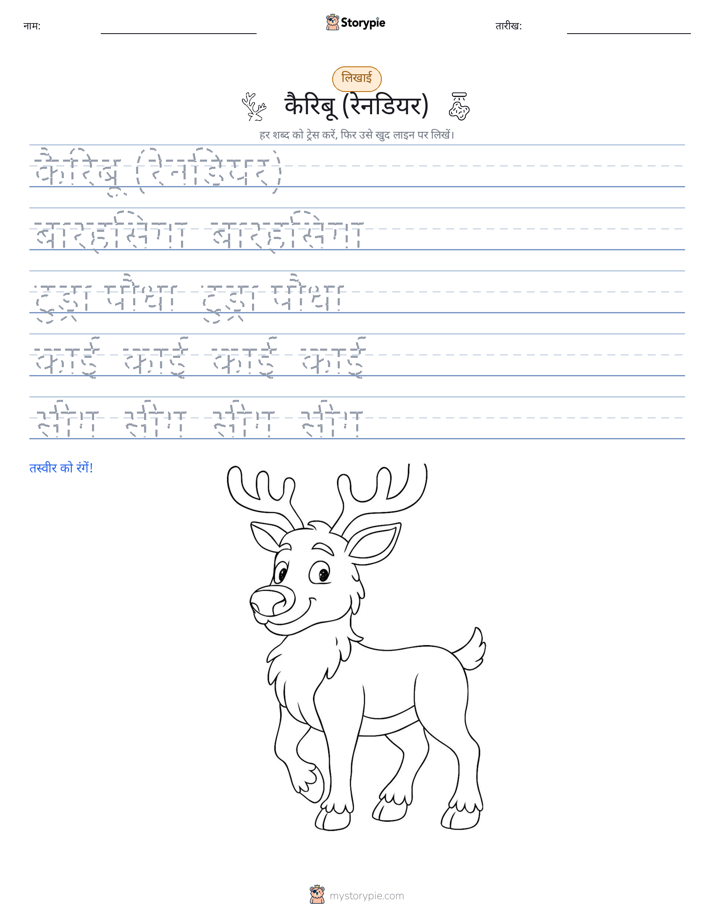 नाम:
Storypie
तारीख:
लिखाई
कैरिबू (रेनडियर)
हर शब्द को ट्रेस करें, फिर उसे खुद लाइन पर लिखें।
कैरिबू (रेनडियर)
बारहसिंगा बारहसिंगा
टुंड्रा पौधा टुंड्रा पौधा
काई काई काई काई
सींग सींग सींग सींग
तस्वीर को रंगें!
mystorypie.com